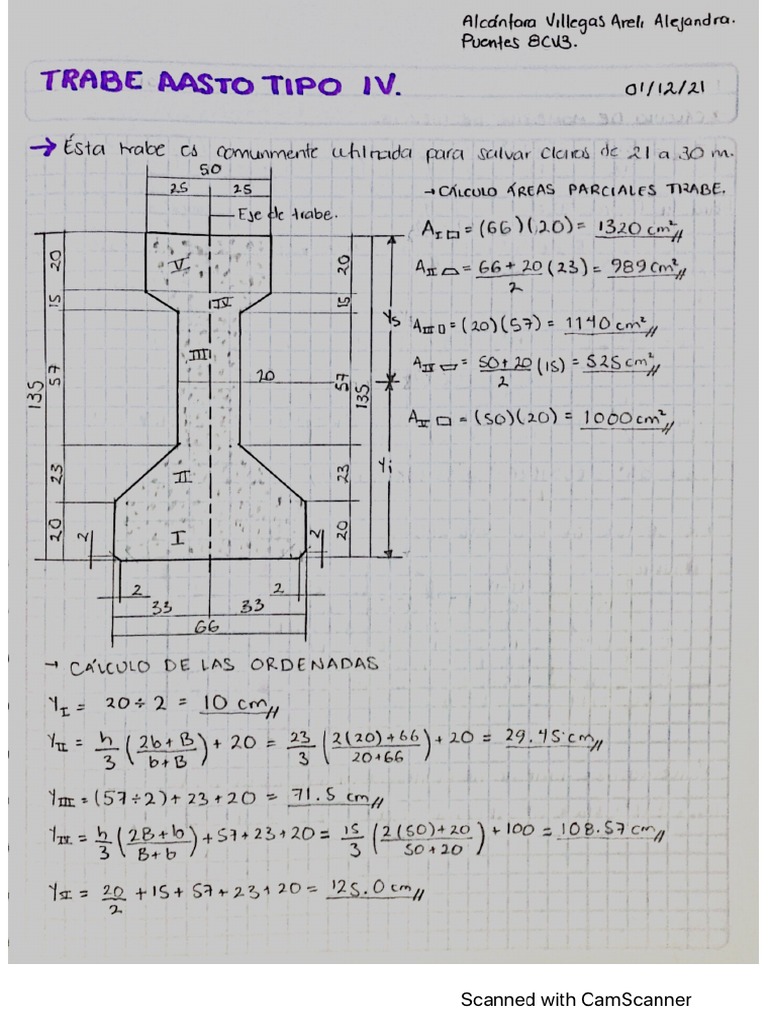 Alcántara Villegas Areli Alejandra.
Puentes 8CV3.
TRABE AASTO TIPO IV.
01/12/21
→ Ésta trabe es comunmente utilizada para salvar claros de 21 a 30 m.
50
25 25
Eje de trabe.
20
15
57
23
20
135
V
IV
III
II
I
20
20
15
57
23
20
135
Ys
Yi
2
2
2
2
33 33
66
→ CÁLCULO ÁREAS PARCIALES TRABE.
A I ▭ = (66)(20) = 1320 cm²
A II ⏢ = 66 + 20 / 2 (23) = 989 cm²
A III ▯ = (20)(57) = 1140 cm²
A IV = 50 + 20 / 2 (15) = 525 cm²
A V ▭ = (50)(20) = 1000 cm²
→ CÁLCULO DE LAS ORDENADAS
Y I = 20 ÷ 2 = 10 cm
Y II = h/3 (2b + B / b + B) + 20 = 23/3 (2(20) + 66 / 20 + 66) + 20 = 29.45 cm
Y III = (57 ÷ 2) + 23 + 20 = 71.5 cm
Y IV = h/3 (2B + b / B + b) + 57 + 23 + 20 = 15/3 (2(50) + 20 / 50 + 20) + 100 = 108.57 cm
Y V = 20/2 + 15 + 57 + 23 + 20 = 125.0 cm
Scanned with CamScanner